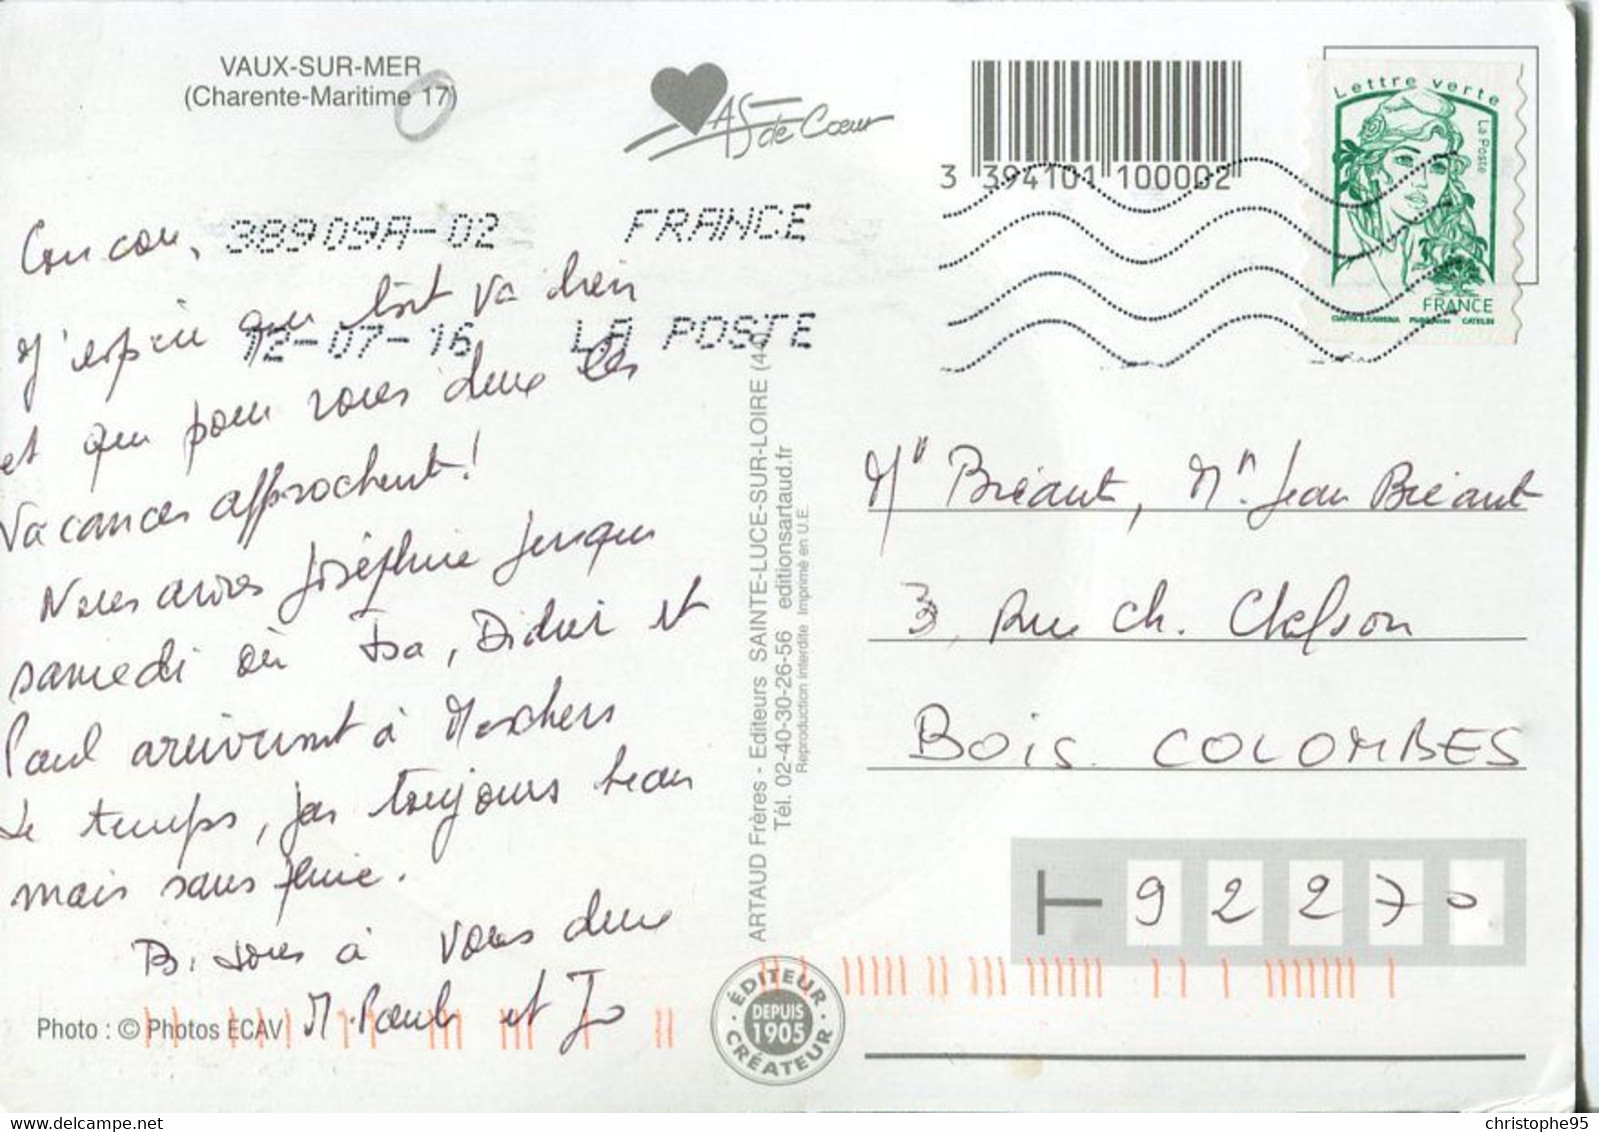 VAUX-SUR-MER
(Charente-Maritime 17)
AS de Cœur
3 394101 100002
Lettre verte
La Poste
FRANCE
CIAPPA & KAWENA Phil@poste CATELIN
38909A-02 FRANCE
12-07-16 LA POSTE
Coucou,
J'espère que tout va bien
et que pour vous deux les
vacances approchent !
Nous avons Joséphine jusqu'au
samedi où Isa, Didier et
Paul arriveront à Meschers
Le temps, pas toujours beau
mais sans pluie.
Bisous à vous deux
M. Paule et Jo
Photo : © Photos ECAV
ARTAUD Frères - Editeurs SAINTE-LUCE-SUR-LOIRE (44
Tél. 02-40-30-26-56 editionsartaud.fr
Reproduction interdite Imprimé en U.E.
ÉDITEUR
DEPUIS
1905
CRÉATEUR
Bréant, Jean Bréant
3, Rue Ch. Chefson
BOIS COLOMBES
92270
christophe95